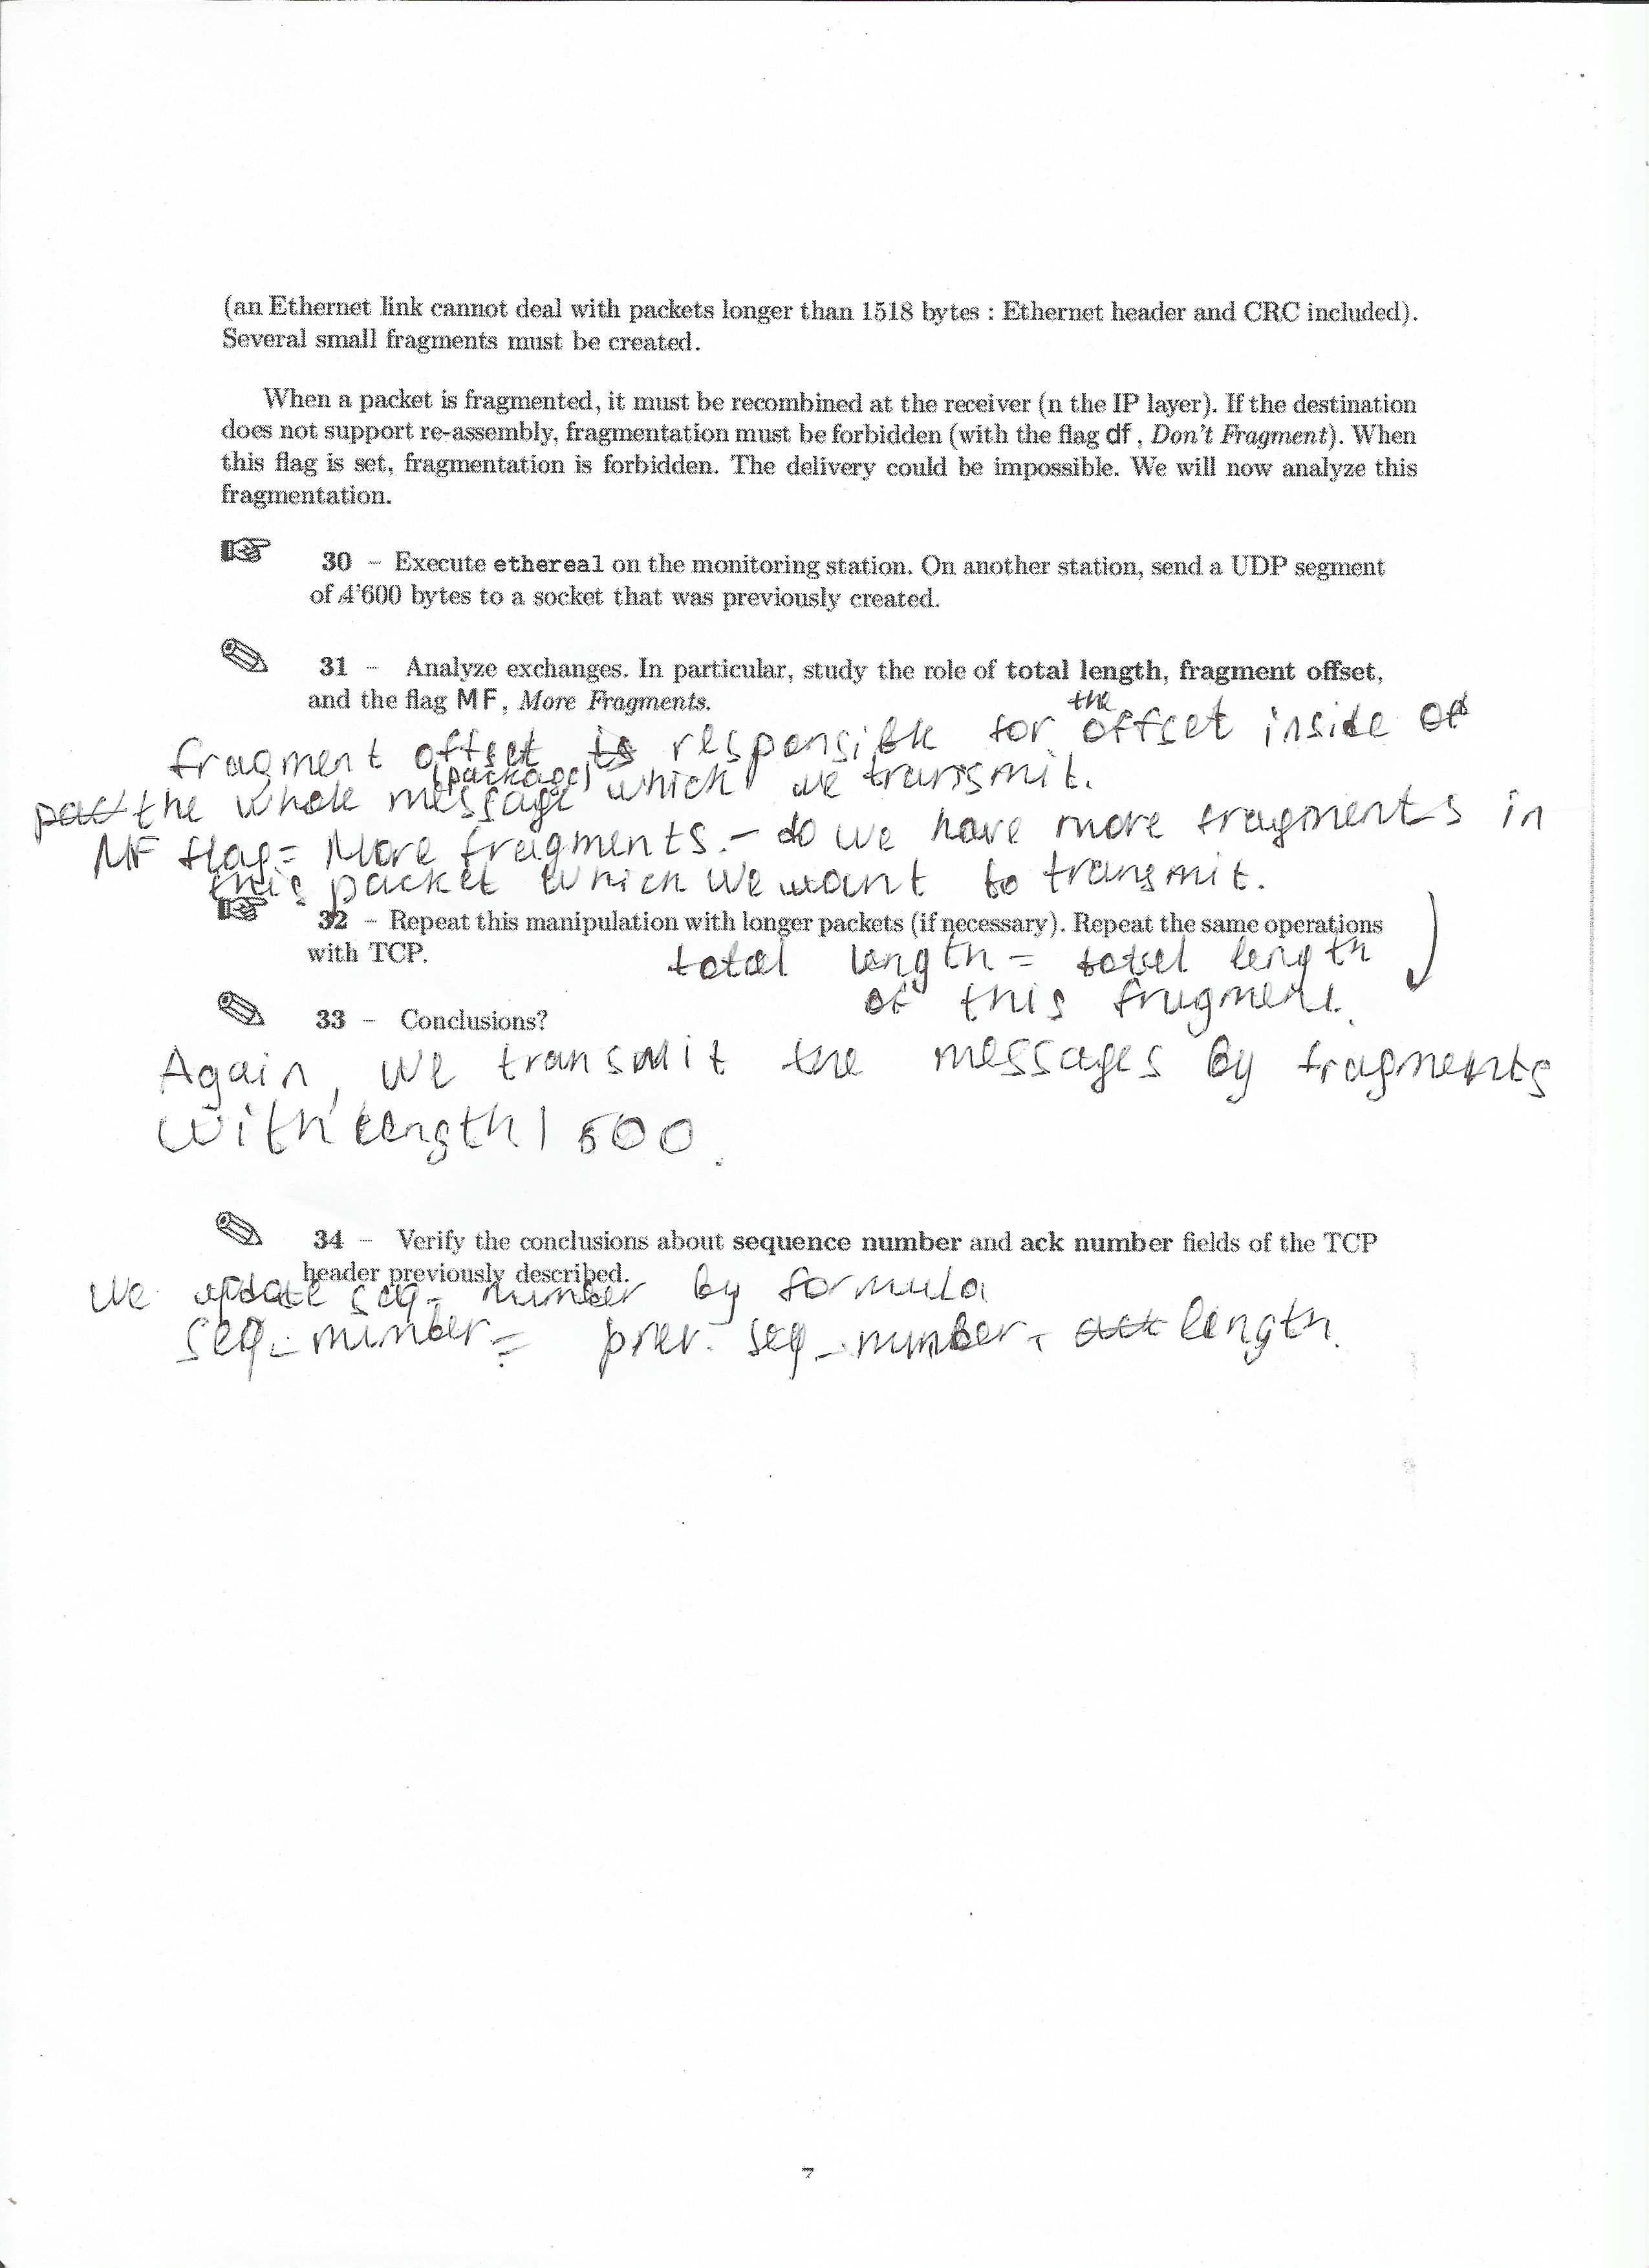 (an Ethernet link cannot deal with packets longer than 1518 bytes : Ethernet header and CRC included).
Several small fragments must be created.
When a packet is fragmented, it must be recombined at the receiver (n the IP layer). If the destination
does not support re-assembly, fragmentation must be forbidden (with the flag df, Don't Fragment). When
this flag is set, fragmentation is forbidden. The delivery could be impossible. We will now analyze this
fragmentation.
30 – Execute ethereal on the monitoring station. On another station, send a UDP segment
of 4'600 bytes to a socket that was previously created.
31 – Analyze exchanges. In particular, study the role of total length, fragment offset,
and the flag MF, More Fragments.
the
fragment offset is responsible for offset inside of
(package)
the whole message which we transmit.
MF flag = More fragments. - do we have more fragments in
this packet which we want to transmit.
32 – Repeat this manipulation with longer packets (if necessary). Repeat the same operations
with TCP.
total length = total length
of this fragment.
33 – Conclusions?
Again, we transmit the messages by fragments
with length 1500.
34 – Verify the conclusions about sequence number and ack number fields of the TCP
header previously described.
We update seq- number by formula
seq_number = prev. seq_number + length.
7